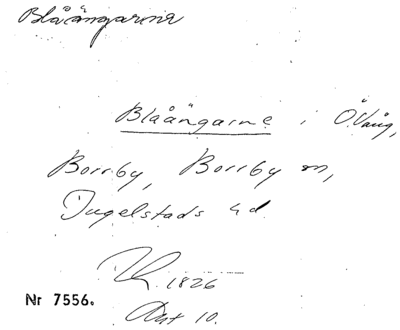 Blåängarna
Blåängarne i Ö. Vång,
Borrby, Borrby sn,
Ingelstads hd
LK. 1826
Akt 10.
Nr 7556.